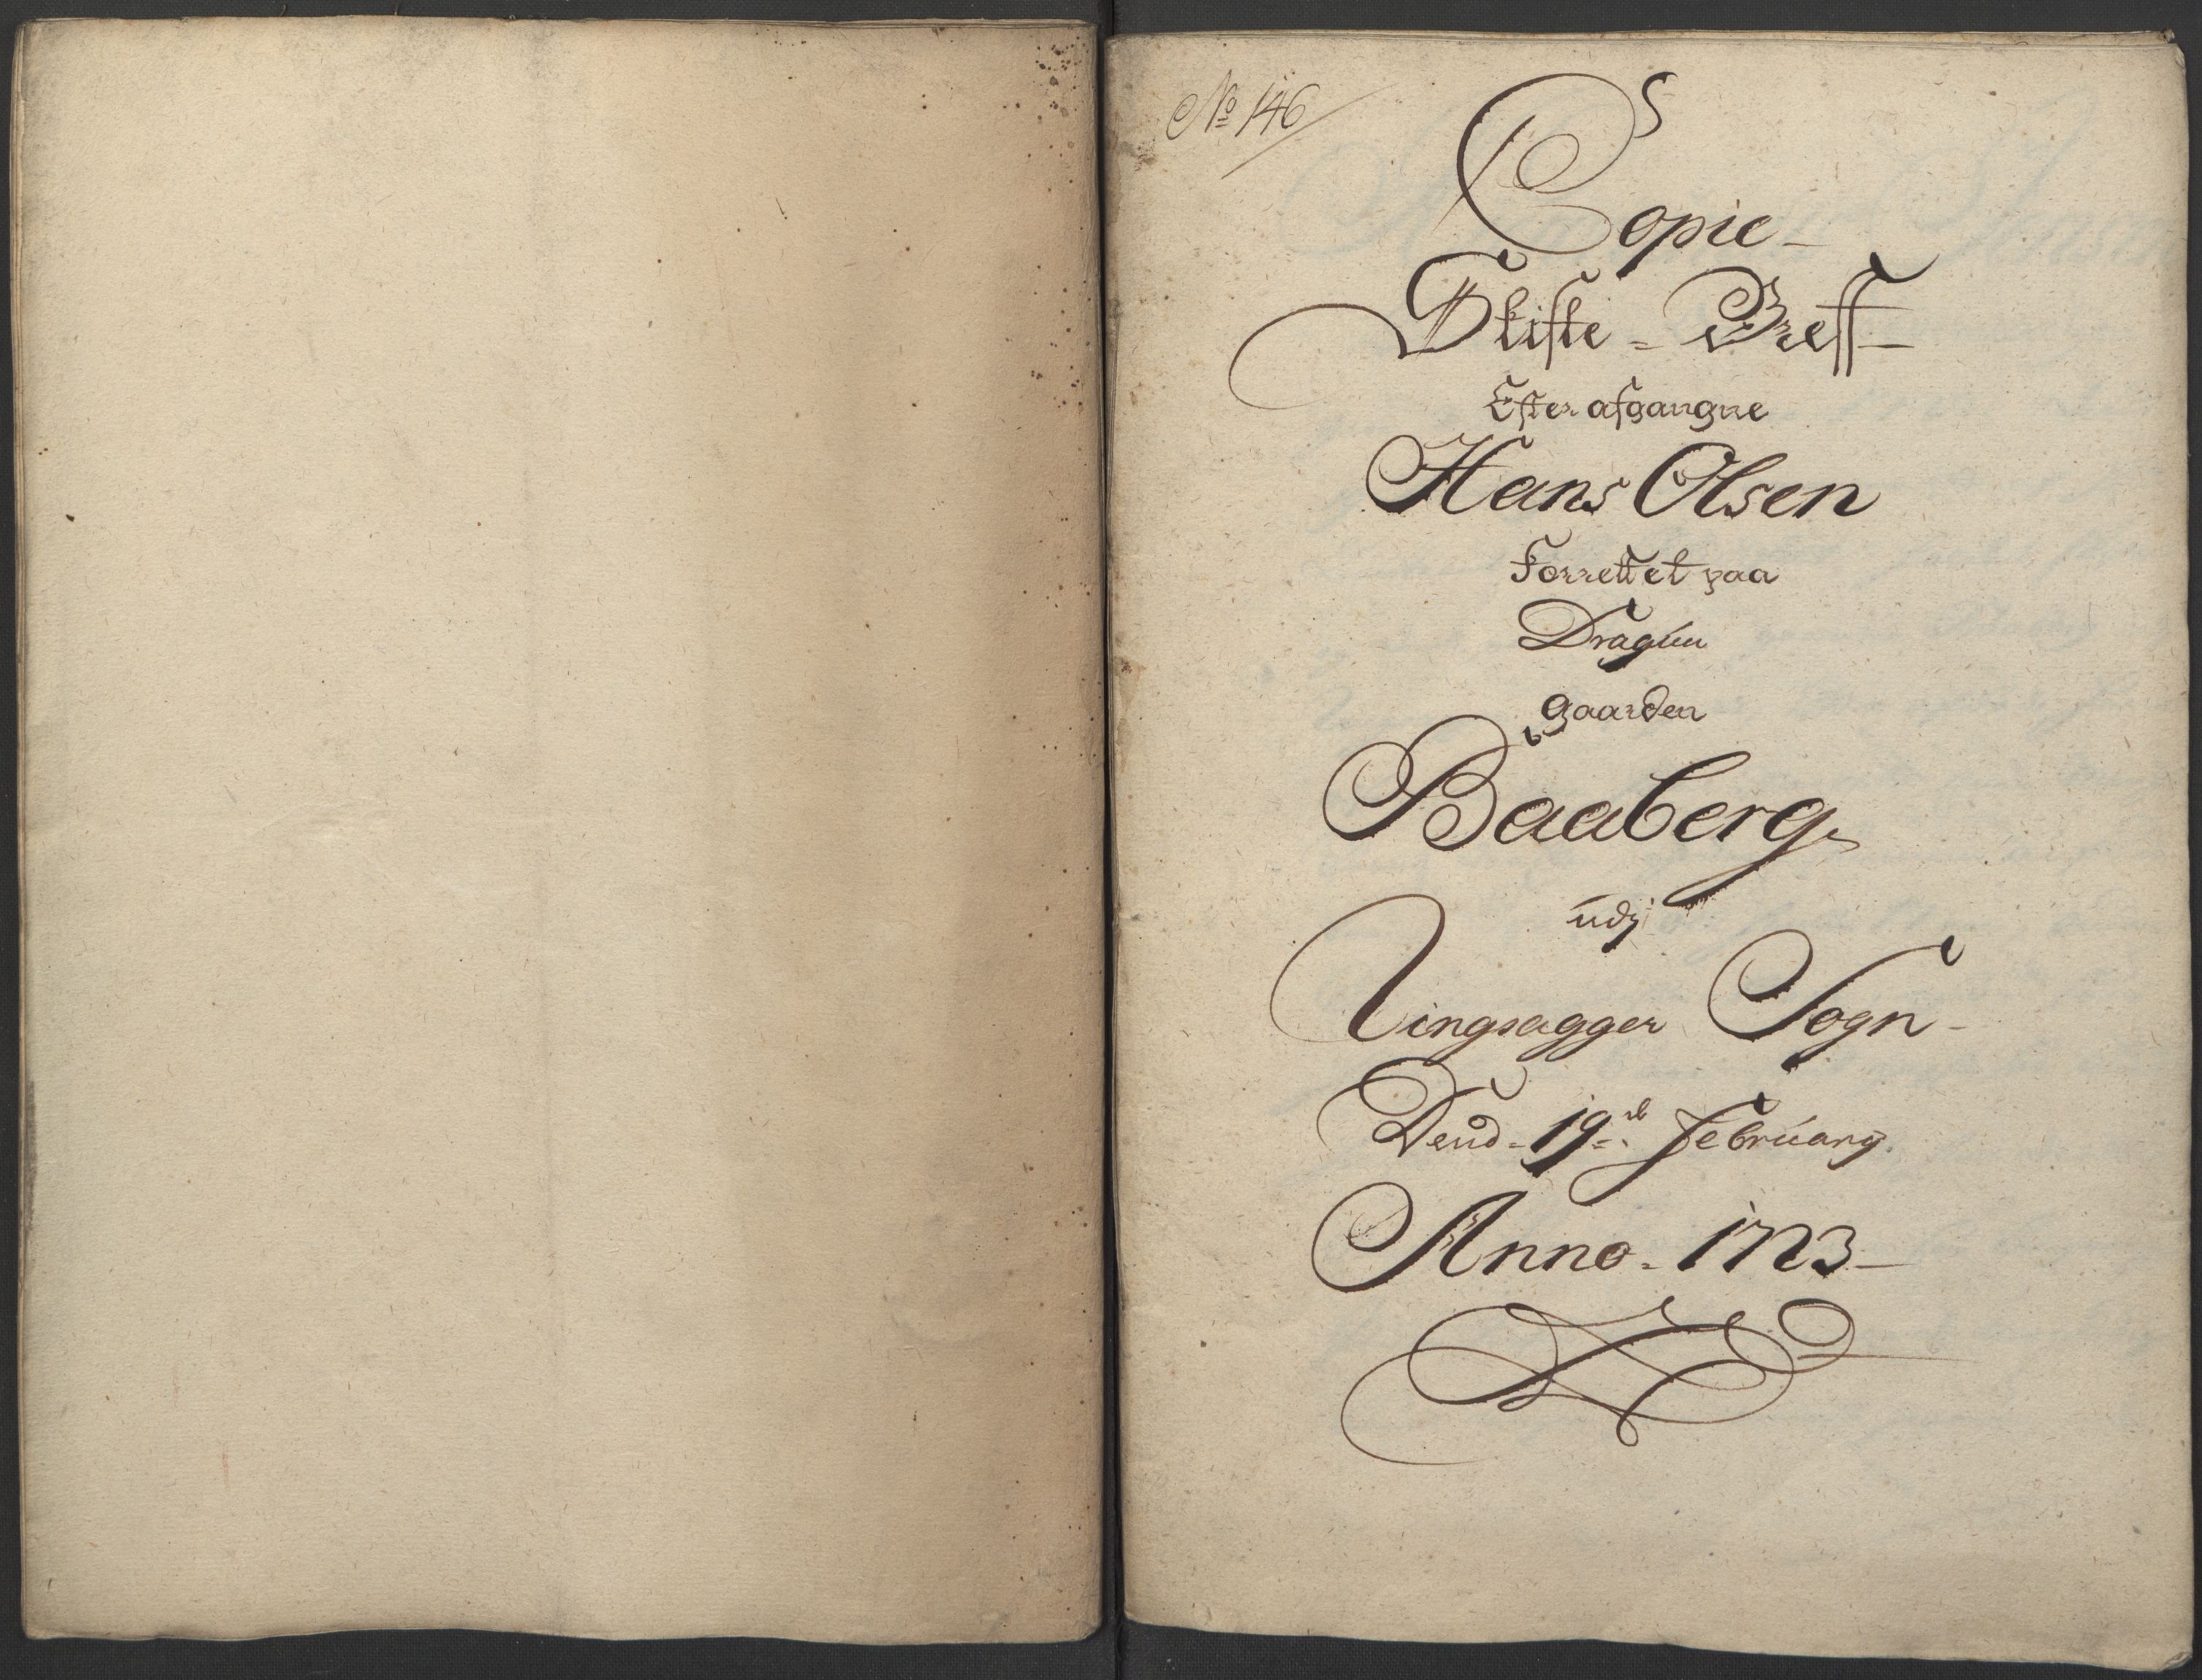 No 146
Copie
Skifte = Breff
Efter afgangne
Hans Olsen
Forrettet paa
Dragún
gaarden
Baaberg
udj
Ringsagger Sogn
Dend 19de February
Anno 1723